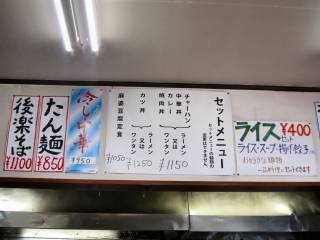 後楽そば
¥1100
たん麺
¥850
冷し中華
¥950
セットメニュー
セットメニューの麺類の
チャーハン
中華丼
カレー
焼肉丼
ラーメン
又は
ワンタン
¥1150
カツ丼
ラーメン
又は
ワンタン
¥1250
麻婆豆腐定食
¥1050
ライス ¥400
セット
ライス・スープ・揚げ餃子
お好きな麺類